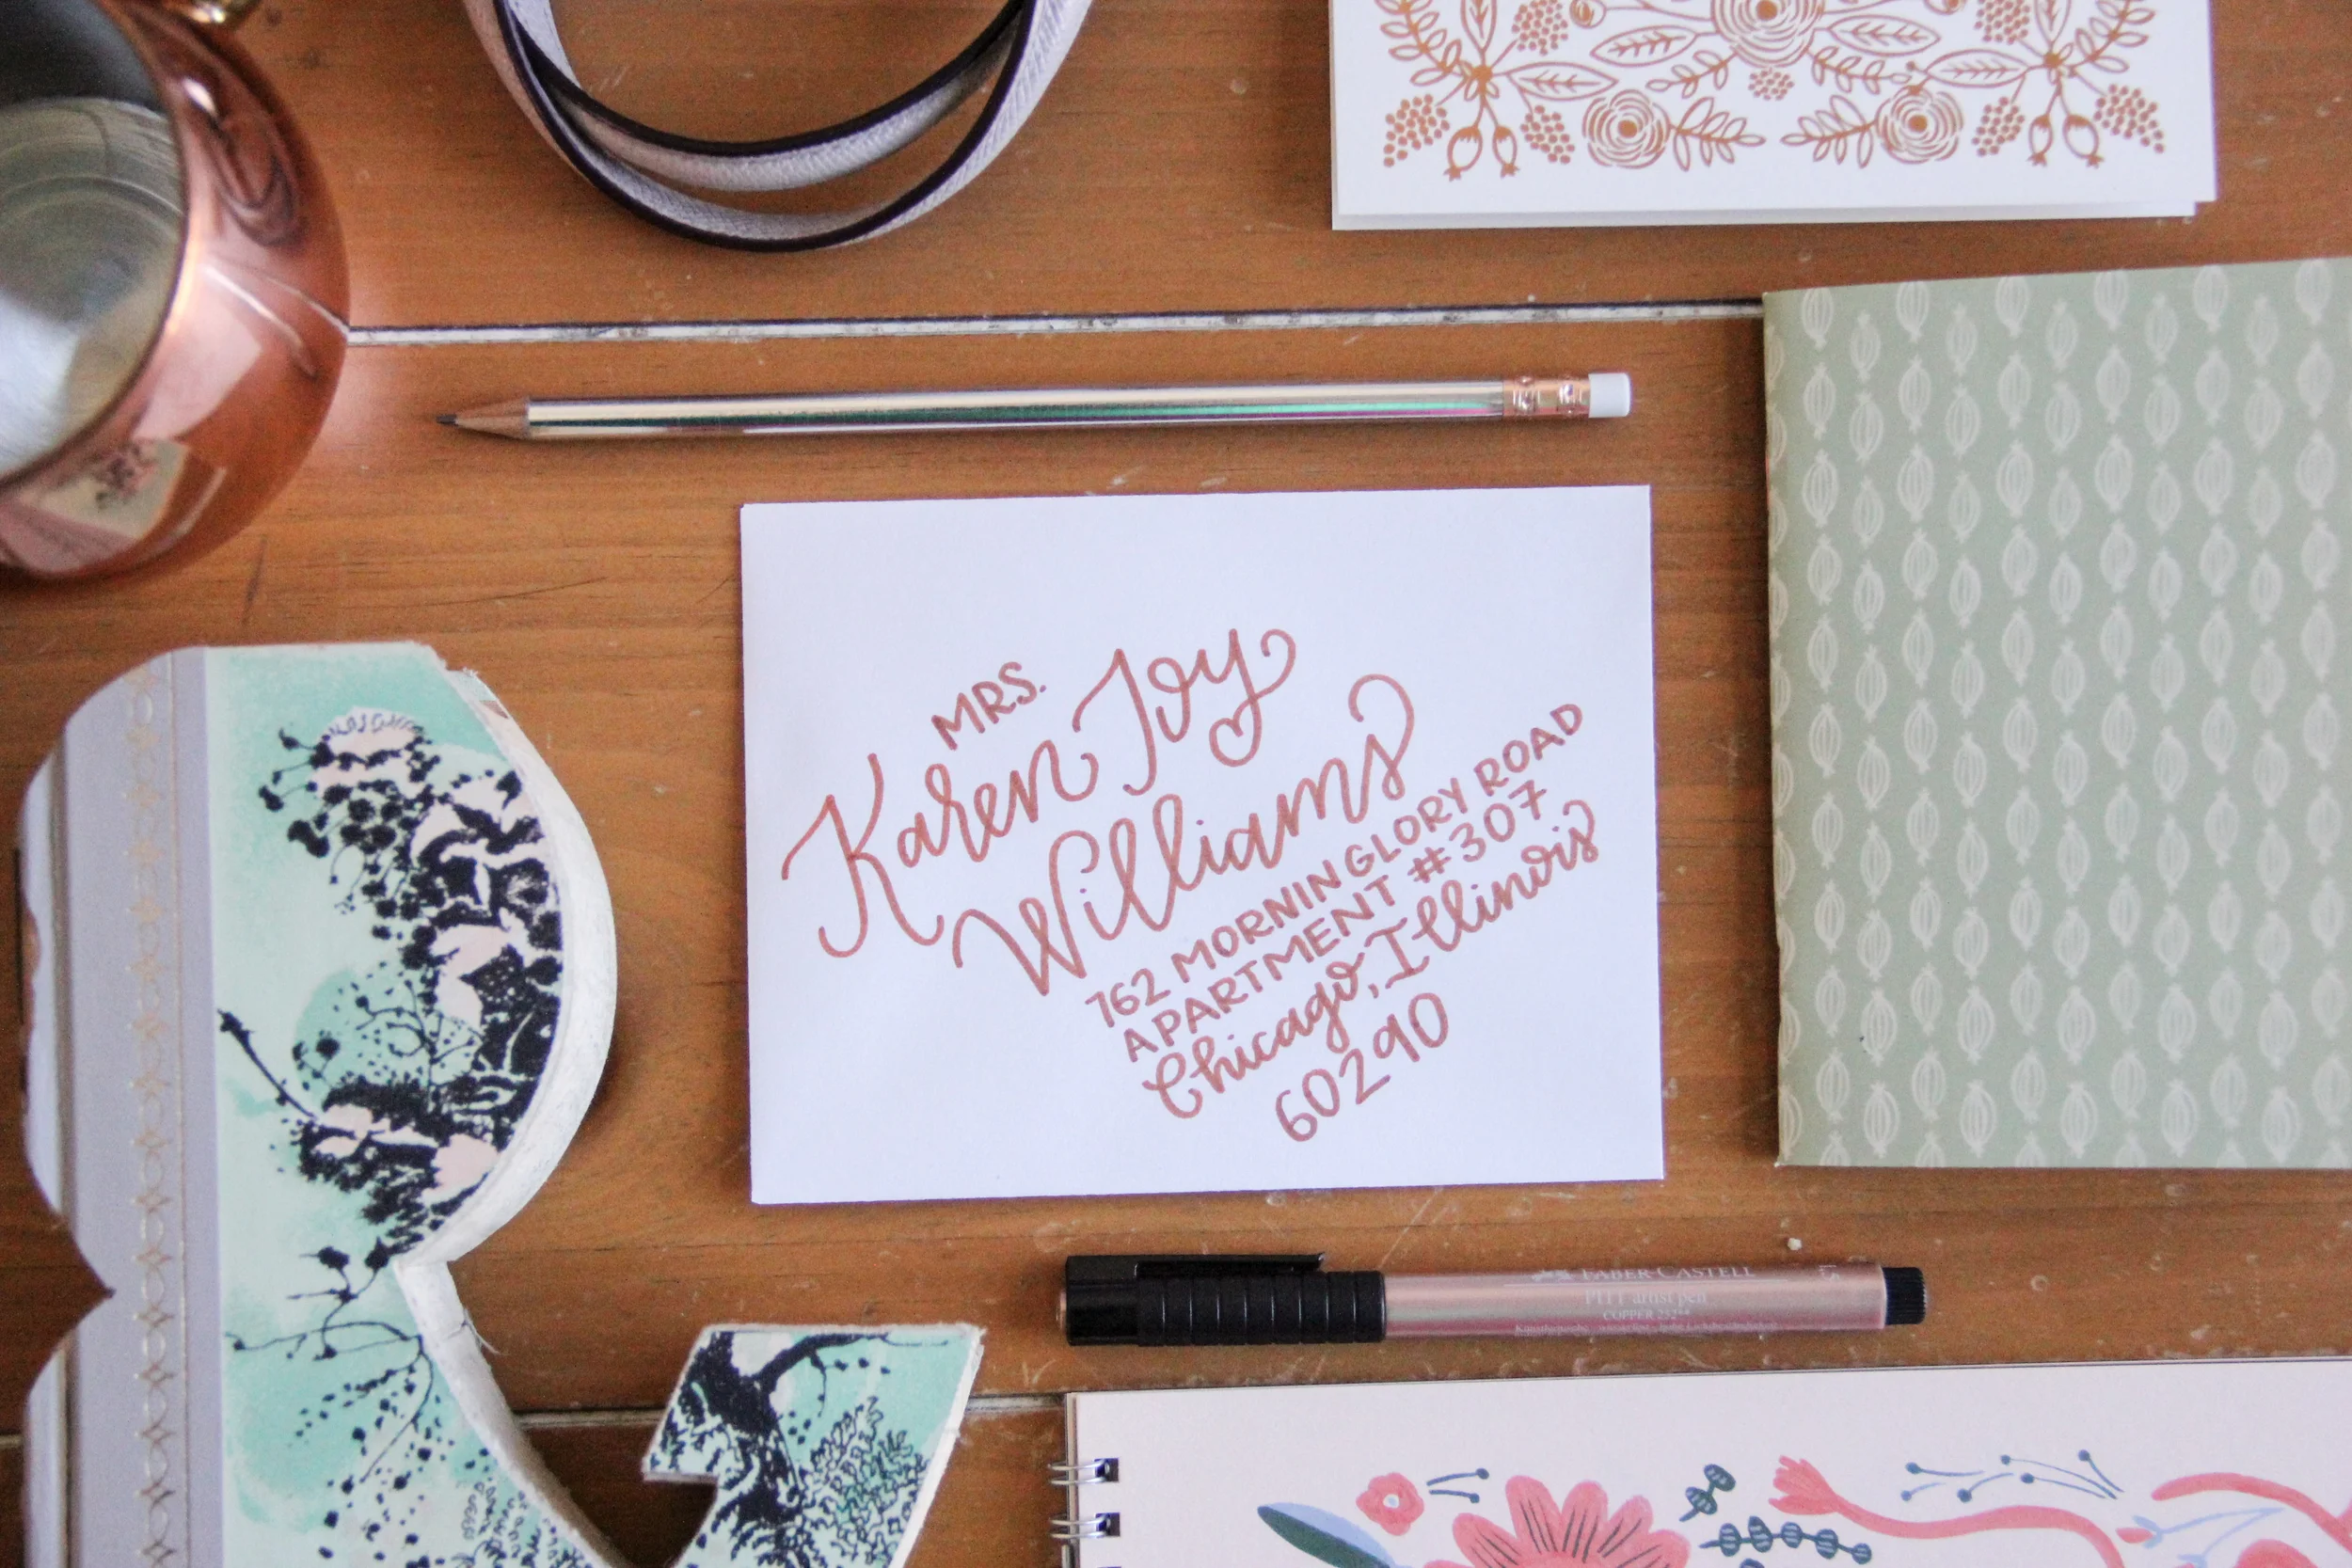 MRS.
Karen Joy
Williams
762 MORNING GLORY ROAD
APARTMENT #307
Chicago, Illinois
60290
FABER-CASTELL
PITT artist pen
COPPER 252